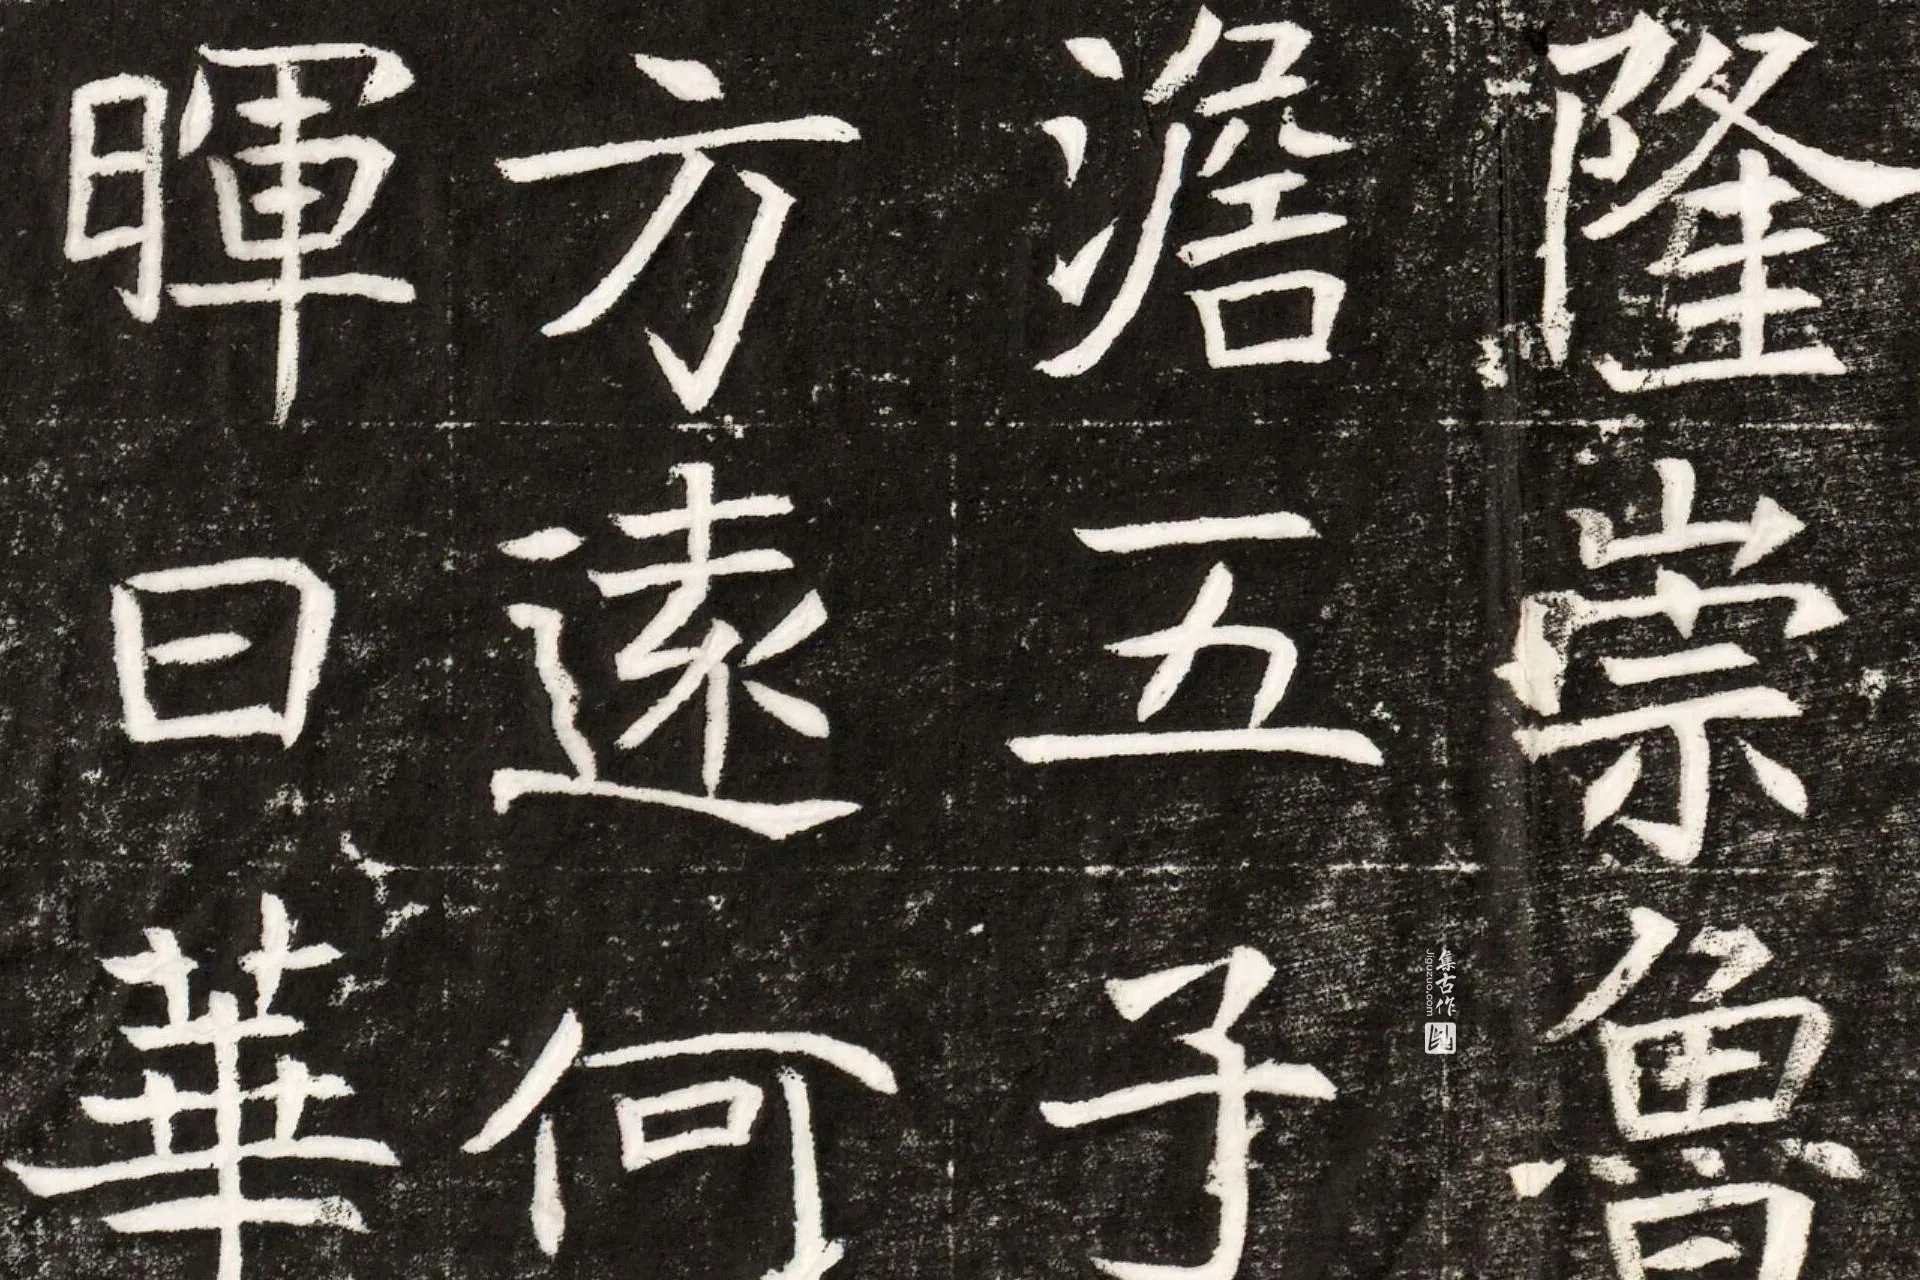 隆崇魯
澹五子
方遠何
暉日華
集古作
Jiguzuo.com